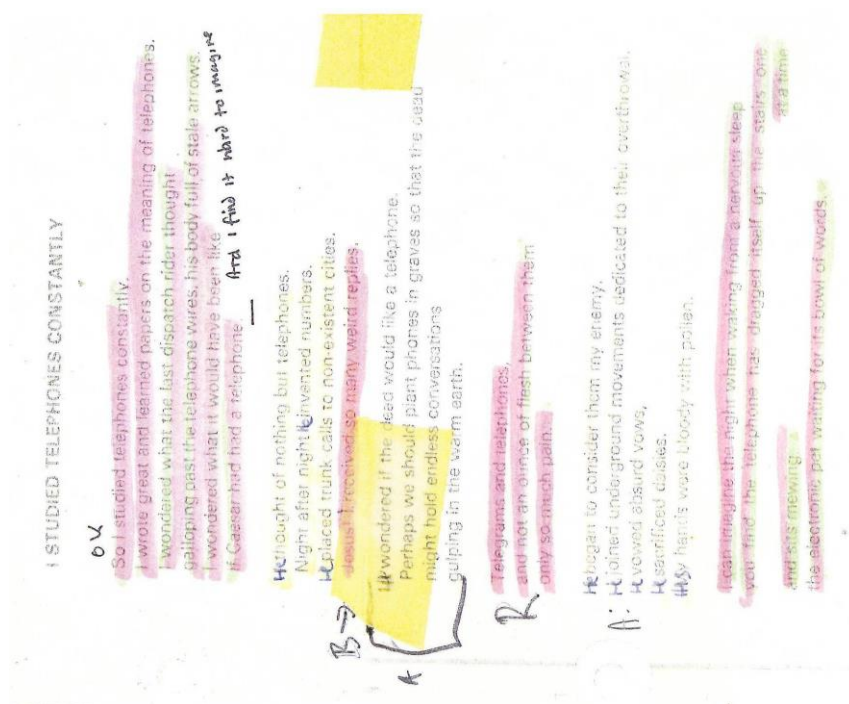 I STUDIED TELEPHONES CONSTANTLY
OK
So I studied telephones constantly.
I wrote great and learned papers on the meaning of telephones.
I wondered what the last dispatch rider thought
galloping past the telephone wires, his body full of stale arrows.
I wondered what it would have been like
if Caesar had had a telephone
And I find it hard to imagine
He thought of nothing but telephones.
Night after night He invented numbers.
He placed trunk calls to non-existent cities.
B → Jesus! I received so many weird replies.
He wondered if the dead would like a telephone.
Perhaps we should plant phones in graves so that the dead
A might hold endless conversations
gulping in the warm earth.
Telegrams and telephones,
R and not an ounce of flesh between them
only so much pain.
He began to consider them my enemy.
A: He joined underground movements dedicated to their overthrowal.
He vowed absurd vows,
He sacrificed daisies.
hands were bloody with pollen.
I can imagine the night when waking from a nervous sleep
you find the telephone has dragged itself up the stairs one
at a time
and sits mewing
the electronic pet waiting for its bowl of words.